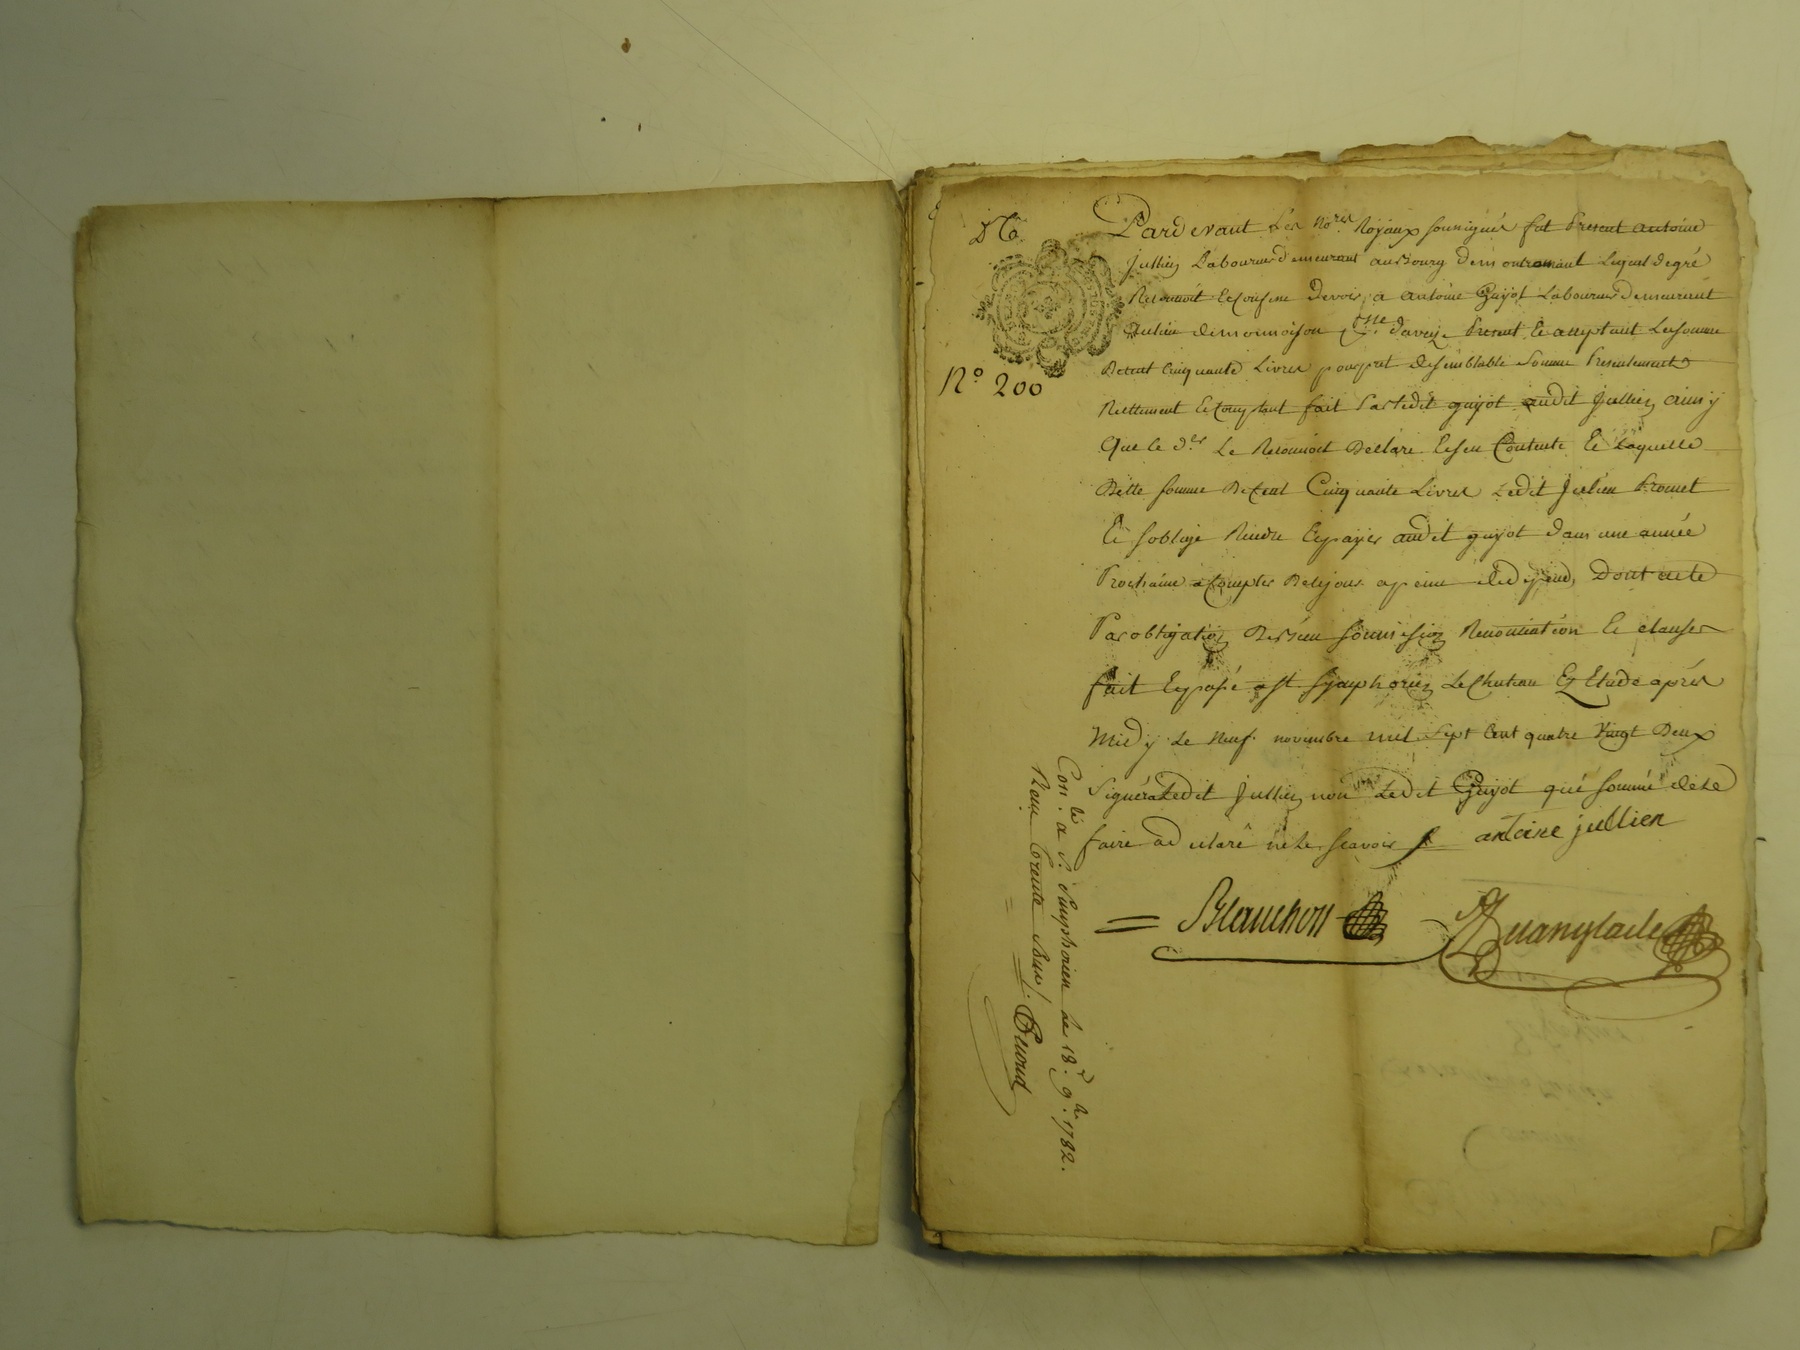 N.º 200
Pardevant Les No.res Royaux soussignés fut Present antoine
Jullien Laboureur demeurant au Bourg de montromant Lequel degré
Reconnoit Et Confesse devoir a antoine Guyot Laboureur demeurant
au Lieu de p.sse d'aveize Present Et acceptant La somme
De Cent Cinquante Livres pour pret de semblable somme Presentement
Reellement Et Comptant fait Par Ledit guyot audit Jullien ainsy
Que le d.er Le Reconnoit Declare Et s'en Contente Et Laquelle
Dette somme De Cent Cinquante Livres Ledit Julien Promet
Et s'oblige Rendre Et payer audit guyot dans une année
Prochaine a Compter De Ce jour a peine de depend, Dont acte
Par obligation De Bien soumission Renonciation Et clauses
fait Et passé a S.t Symphorien Le Chateau Ez Etude après
Midy Le Neuf novembre mil sept Cent quatre Vingt Deux
Signéra Ledit Jullien non Ledit Guyot qui sommé de le
faire a declaré ne le scavoir antoine jullien
Blanchon
Con.lé a S.t Simphorien le 18. 9.bre 1782.
Reçu trente sous